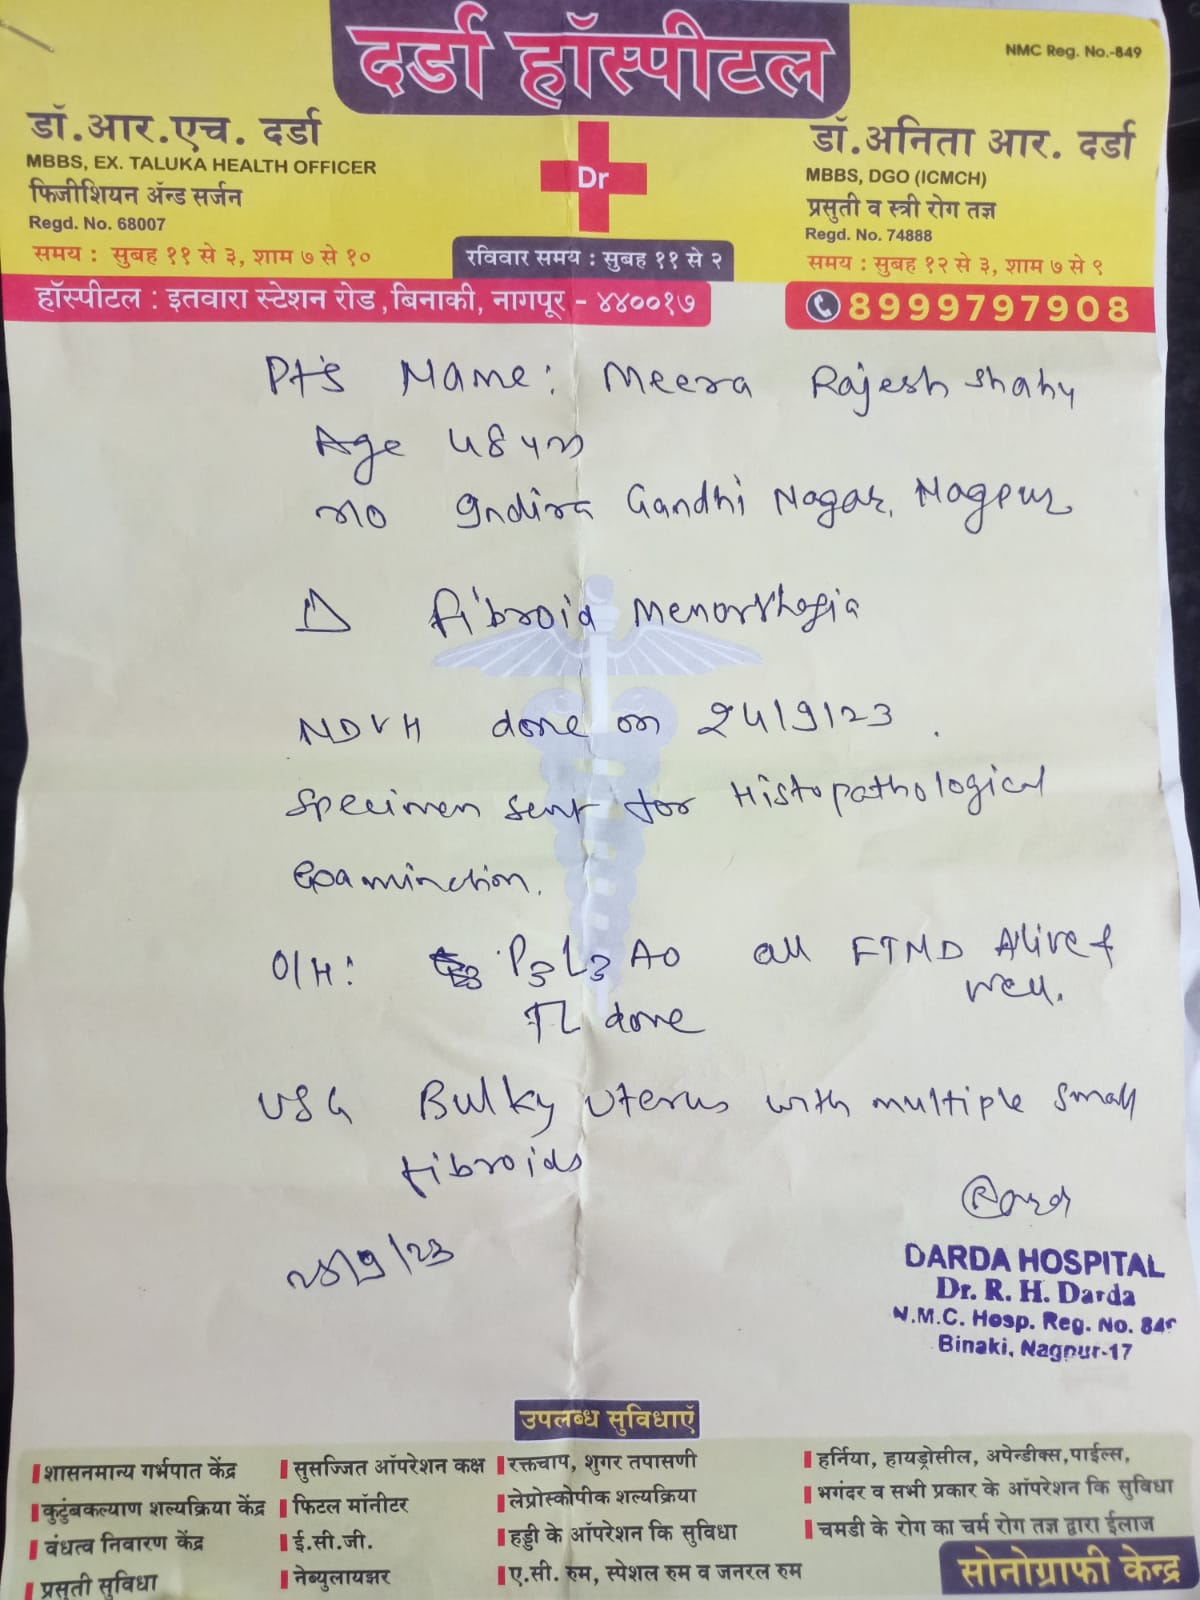 दर्डा हॉस्पीटल
NMC Reg. No.-849
डॉ.आर.एच. दर्डा
MBBS, EX. TALUKA HEALTH OFFICER
फिजीशियन ॲन्ड सर्जन
Regd. No. 68007
समय : सुबह ११ से ३, शाम ७ से १०
Dr
रविवार समय : सुबह ११ से २
डॉ.अनिता आर. दर्डा
MBBS, DGO (ICMCH)
प्रसुती व स्त्री रोग तज्ञ
Regd. No. 74888
समय : सुबह १२ से ३, शाम ७ से ९
हॉस्पीटल : इतवारा स्टेशन रोड, बिनाकी, नागपूर - ४४००१७
8999797908
Pt's Name: Meera Rajesh Shahu
Age 48 yrs
Indira Gandhi Nagar, Nagpur
Fibroid Menorrhagia
NDVH done on 24/9/23.
Specimen sent for Histopathological
Examination.
O/H: P3L3A0 all FTND Alive &
well.
TL done
USG Bulky Uterus with multiple small
fibroids
/9/23
DARDA HOSPITAL
Dr. R. H. Darda
N.M.C. Hosp. Reg. No. 849
Binaki, Nagpur-17
उपलब्ध सुविधाएँ
शासनमान्य गर्भपात केंद्र
कुटुंबकल्याण शल्यक्रिया केंद्र
वंधत्व निवारण केंद्र
प्रसुती सुविधा
सुसज्जित ऑपरेशन कक्ष
फिटल मॉनीटर
ई.सी.जी.
नेब्युलायझर
रक्तचाप, शुगर तपासणी
लेप्रोस्कोपीक शल्यक्रिया
हड्डी के ऑपरेशन कि सुविधा
ए.सी. रुम, स्पेशल रुम व जनरल रुम
हर्निया, हायड्रोसील, अपेन्डीक्स,पाईल्स,
भगंदर व सभी प्रकार के ऑपरेशन कि सुविधा
चमडी के रोग का चर्म रोग तज्ञ द्वारा ईलाज
सोनोग्राफी केन्द्र